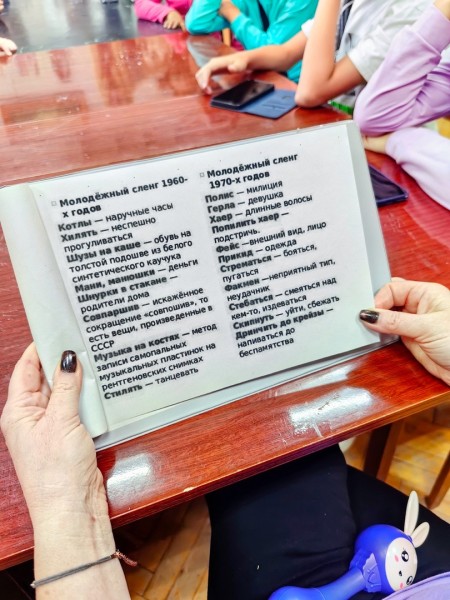 Молодёжный сленг 1960-
х годов
Котлы — наручные часы
Хилять — неспешно
прогуливаться
Шузы на каше — обувь на
толстой подошве из белого
синтетического каучука
Мани, манюшки — деньги
Шнурки в стакане —
родители дома
Совпаршив — искажённое
сокращение «совпошив», то
есть вещи, произведенные в
СССР
Музыка на костях — метод
записи самопальных
музыкальных пластинок на
рентгеновских снимках
Стилять — танцевать
Молодёжный сленг
1970-х годов
Полис — милиция
Герла — девушка
Хаер — длинные волосы
Попилить хаер —
подстричь.
Фейс —внешний вид, лицо
Прикид — одежда
Стрематься — бояться,
пугаться
Факмен —неприятный тип,
неудачник
Стебаться — смеяться над
кем-то, издеваться
Скипнуть — уйти, сбежать
Дринчить до крейзы —
напиваться до
беспамятства